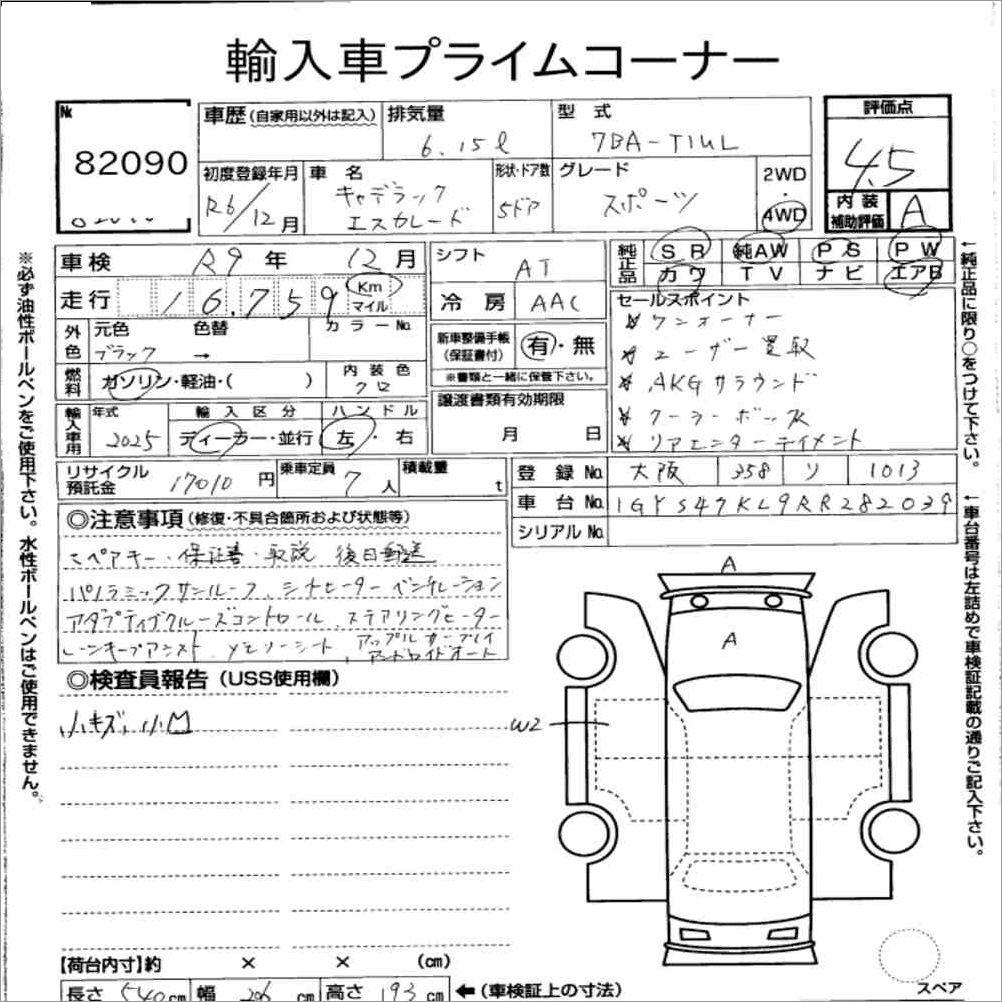 輸入車プライムコーナー
№
82090
車歴(自家用以外は記入)
排気量
6.15ℓ
型式
7BA-T1UL
評価点
4.5
内装補助評価
A
初度登録年月
R6/12月
車名
キャデラック
エスカレード
形状・ドア数
5ドア
グレード
スポーツ
2WD
・
4WD
車検 R9年 12月
走行 16,759 Km
マイル
シフト AT
冷房 AAC
純正品
SR 純AW PS PW
カワ TV ナビ エアB
外色
元色 色替 カラーNo.
ブラック →
燃料
ガソリン・軽油・( )
内装色
クロ
新車整備手帳(保証書付)
有・無
※書類と一緒に保管下さい。
輸入車用
年式
2025
輸入区分
ディーラー・並行
ハンドル
左・右
譲渡書類有効期限
月 日
セールスポイント
ワンオーナー
ユーザー買取
AKGサラウンド
クーラーボックス
リアエンターテイメント
リサイクル預託金 17010円
乗車定員 7人
積載量 t
登録No. 大阪 358 ソ 1013
車台No. 1GYS47KL9RR282039
シリアルNo.
◎注意事項(修復・不具合箇所および状態等)
スペアキー・保証書・取説 後日郵送
パノラミックサンルーフ、シートヒーター ベンチレーション
アダプティブクルーズコントロール、ステアリングヒーター
レーンキープアシスト、メモリーシート、アップルカープレイ
アンドロイドオート
◎検査員報告(USS使用欄)
小キズ、小凹
A
A
W2
【荷台内寸】約 × × (cm)
長さ 540cm 幅 206cm 高さ 193cm ←(車検証上の寸法)
スペア
※必ず油性ボールペンをご使用下さい。水性ボールペンはご使用できません。
←純正品に限り○をつけて下さい。
←車台番号は左詰めで車検証記載の通りご記入下さい。